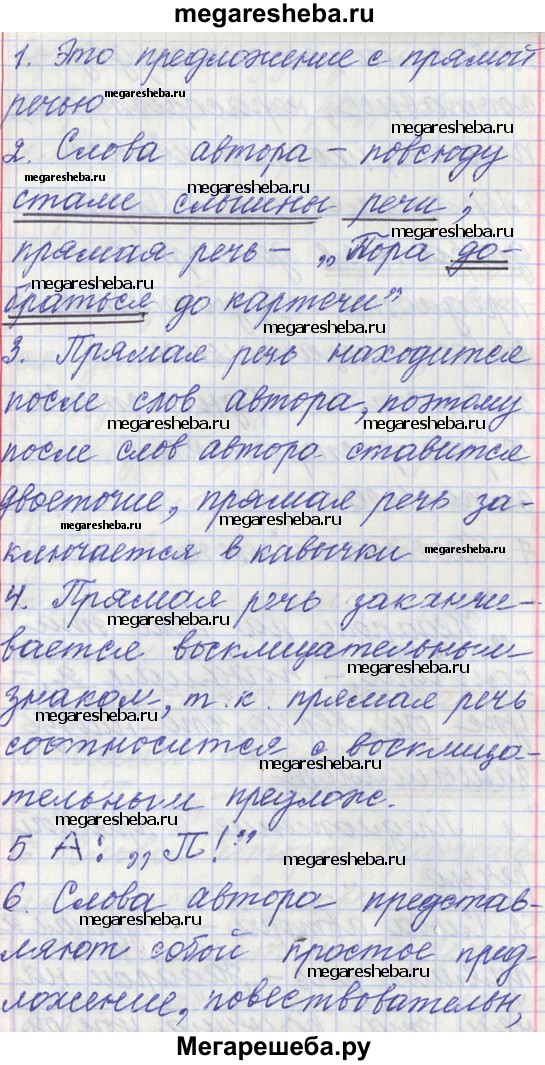 megaresheba.ru
1. Это предложение с прямой
речью megaresheba.ru
megaresheba.ru
2. Слова автора – повсюду
megaresheba.ru
megaresheba.ru
стали слышны речи;
megaresheba.ru
прямая речь – „Пора до-
megaresheba.ru
megaresheba.ru
браться до картечи”
megaresheba.ru
3. Прямая речь находится
после слов автора, поэтому
megaresheba.ru megaresheba.ru
после слов автора ставится
двоеточие, прямая речь за-
megaresheba.ru megaresheba.ru
ключается в кавычки megaresheba.ru
4. Прямая речь заканчи-
megaresheba.ru
вается восклицательным
megaresheba.ru
знаком, т.к. прямая речь
megaresheba.ru
соотносится с восклица-
megaresheba.ru
тельным предлож.
5 А: „П!”
megaresheba.ru
6. Слова автора представ-
megaresheba.ru
ляют собой простое пред-
megaresheba.ru
ложение, повествовательн,
megaresheba.ru
Мегарешеба.ру